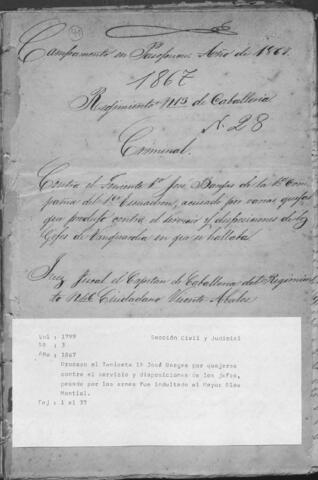 Campamento en Paso Pucú Año de 1867
1867
Regimiento Nº 13 de Caballeria
N. 28
Criminal.
Contra el Teniente 1º José Bargas de la 1ª Com-
pañia del 1er Escuadron, acusado por varias quejas
que produjo contra el servicio y disposiciones de los
Gefes de Vanguardia en que se hallaba
Juez fiscal el Capitan de Caballeria del Regimien-
to Ciudadano Vicente
Vol : 1799 Sección Civil y Judicial
Nº : 3
Año : 1867
Proceso al Teniente 1º José Bargas por quejarse
contra el servicio y disposiciones de los jefes,
pasado por las armas fue indultado el Mayor Blas
Montiel.
Foj : 1 al 37